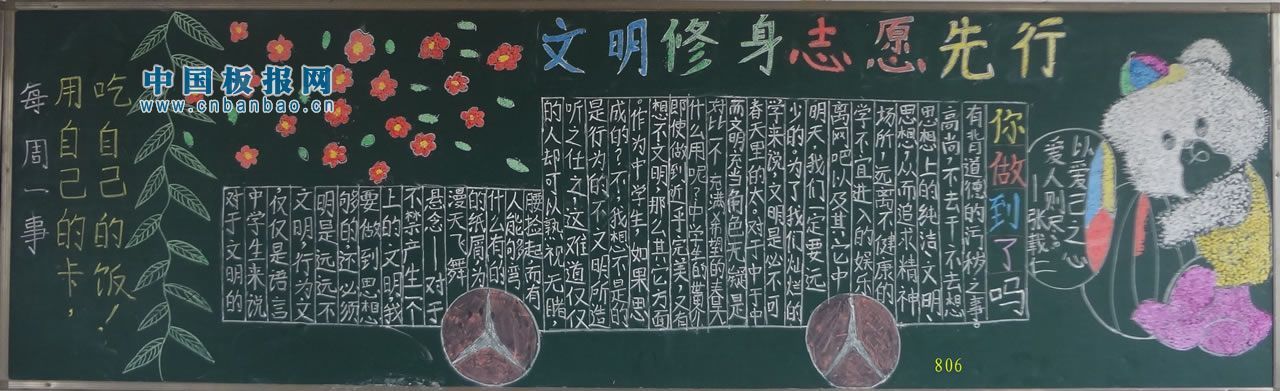 文明修身志愿先行
每周一事
用自己的卡，
吃自己的饭！
中国板报网
www.cnbanbao.cn
对于文明的
中学生来说
，仅仅是语言
文明，行为文
明是远远不
够的，还必须
要做到思想
上的文明，我
不禁产生个
悬念——对于
漫天飞舞
的纸屑，为
什么有的
人能够弯
腰捡起，而有
的人却可以熟视无睹，
听之任之，这难道仅仅
是行为的不文明所造
成的？不，我想，不是的
。作为中学生，如果思
想不文明，那么其它方面
即使做到近乎完美，又有
什么用呢？中学生的世界
对比不 充满希望的春天
而文明充当角色无疑是
春天里的太。对于中丁中
学来说，文明是必不可
少的，为了我们灿烂的
明天，我们一定要远
离网吧以及其它中
学不宜进入的娱乐
场所，远离不健康的
思想，从而追求精神
思想上的纯洁、文明、
高尚，不去干、不去想
有背道德的污秽之事。
你做到了吗
以爱己之心
爱人则尽
—张载
806